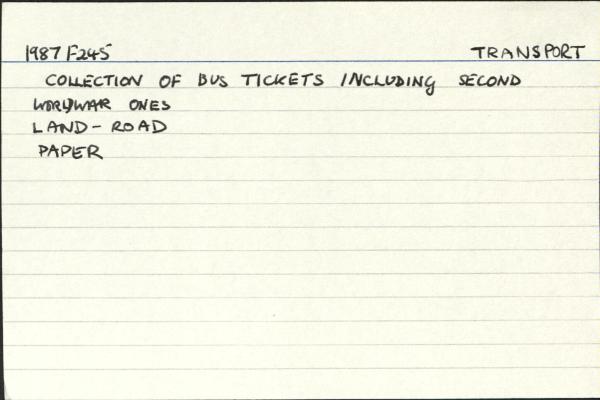 1987 F245 TRANSPORT
COLLECTION OF BUS TICKETS INCLUDING SECOND
WORLD WAR ONES
LAND - ROAD
PAPER